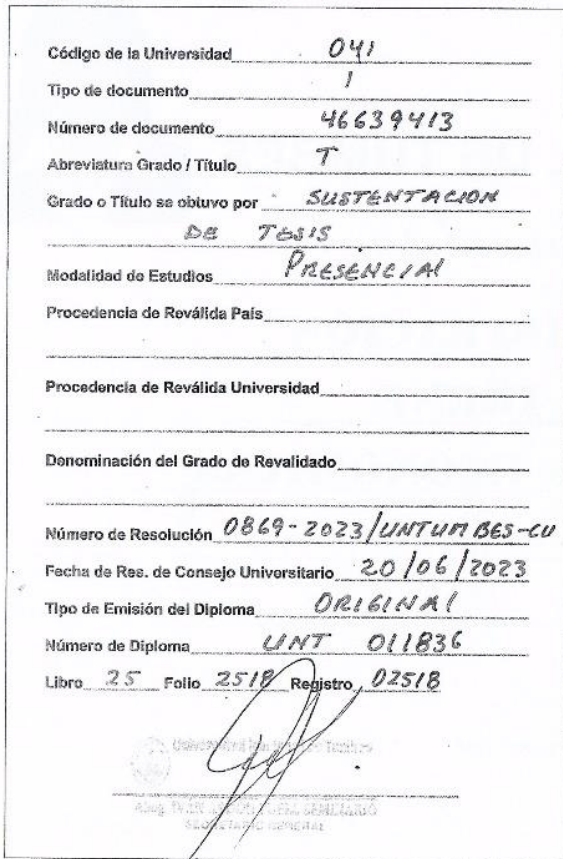 Código de la Universidad 041
Tipo de documento 1
Número de documento 46639413
Abreviatura Grado / Título T
Grado o Título se obtuvo por SUSTENTACION
DE TESIS
Modalidad de Estudios PRESENCIAL
Procedencia de Reválida País
Procedencia de Reválida Universidad
Denominación del Grado de Revalidado
Número de Resolución 0869-2023/UNTUMBES-CU
Fecha de Res. de Consejo Universitario 20/06/2023
Tipo de Emisión del Diploma ORIGINAL
Número de Diploma UNT 011836
Libro 25 Folio 2518 Registro 02518
Universidad Nacional de Tumbes
Abog.
SECRETARIO GENERAL